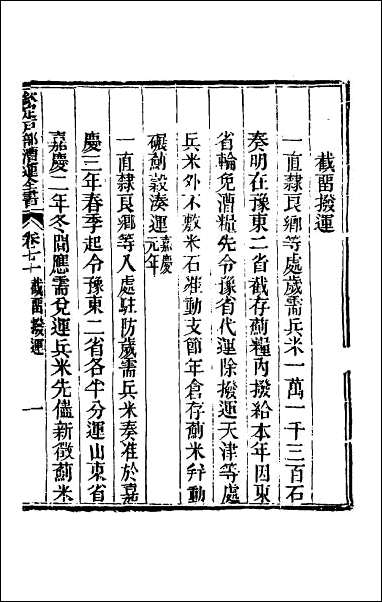 截畱撥運
一直隸良鄉等處歲需兵米一萬一千三百石
奏明在豫東二省截存薊糧內撥給本年因東
省輪免漕糧先令豫省代運除撥運天津等處
兵米外不敷米石准動支節年倉存薊米幷動
碾薊穀湊運嘉慶元年
一直隸良鄉等八處駐防歲需兵米奏准於嘉
慶三年春季起令豫東二省各半分運山東省
嘉慶二年冬間應需兌運兵米先儘新徵薊米
欽定戶部漕運全書 卷七十 截畱撥運 一